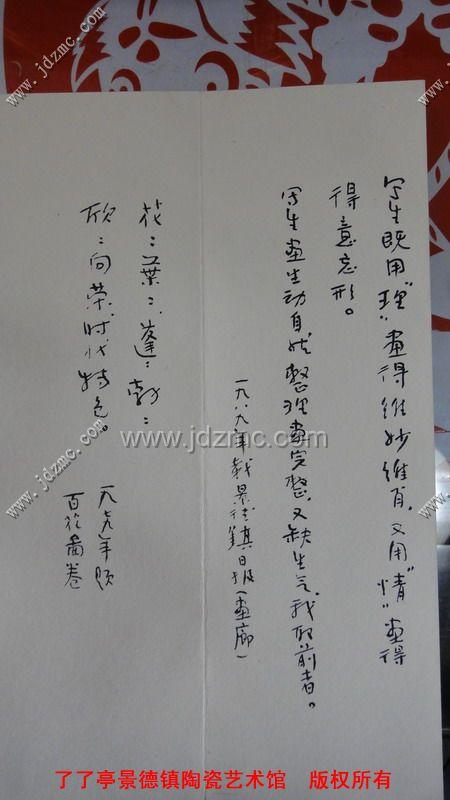 写生既用"理"画得维妙维肖，又用"情"画得
得意忘形。
写生画生动自然，整理画完整，又缺生气，我取前者。
一九八九年载景德镇日报（画廊）
花：葉：蓬：勃：
欣：向荣，时代特色。
一九七九年题
百花图卷
www.jdzmc.com
www.jdzmc.com
www.jdzmc.com
www.jdzmc.com
www.jdzmc.com
了了亭景德镇陶瓷艺术馆 版权所有